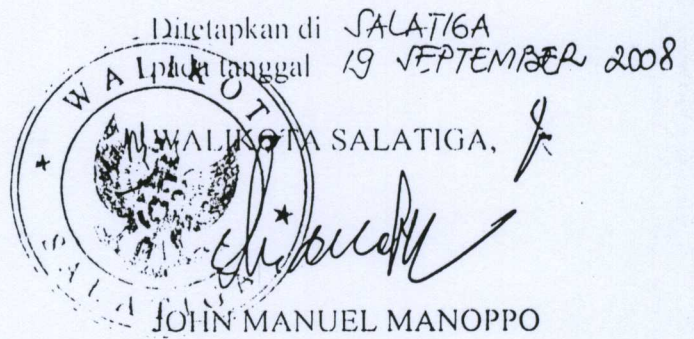 Ditetapkan di SALATIGA
pada tanggal 19 SEPTEMBER 2008
WALIKOTA
WALIKOTA SALATIGA,
SALATIGA
JOHN MANUEL MANOPPO